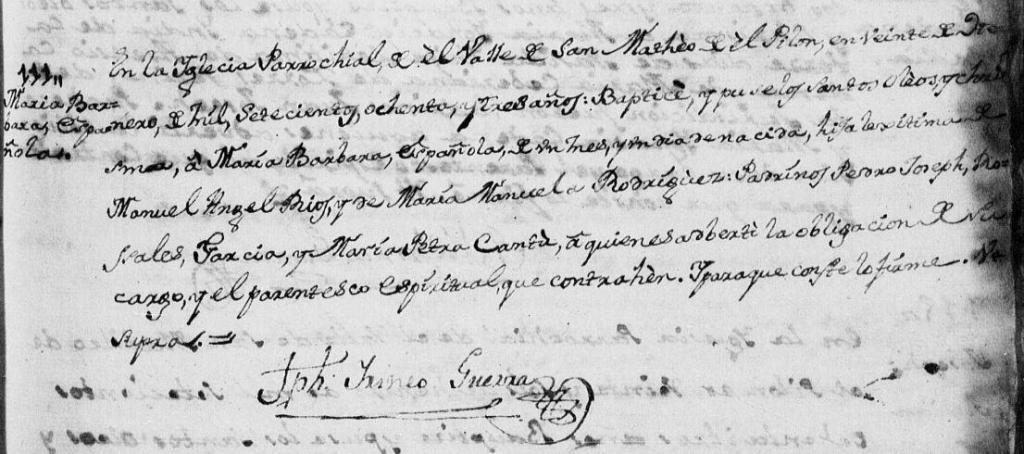 111„
Maria Bar=
bara, Espa
ñola.
En la Yglecia Parrochial, de èl Valle de San Mathèo de èl Pilon, en veinte de De
nero, de Mil, Setecientos, ochenta, y tres años: Baptizè, y puse los Santos Oleos, y chris
ma, â María Barbara, Española, de un Mes, y un dia de nacida, hija lexitima de
Manuel Angel Rios, y de María Manuela Rodríguez: Padrinos Pedro Joseph, Ro=
sales, Garcia, y María Petra Cantù, â quienes adbertì la obligacion de Su
cargo, y el parentesco Espiritual, que contrahèn. Y para que conste lo firme. Vt
supra.=
Jph. Irineo Guerra